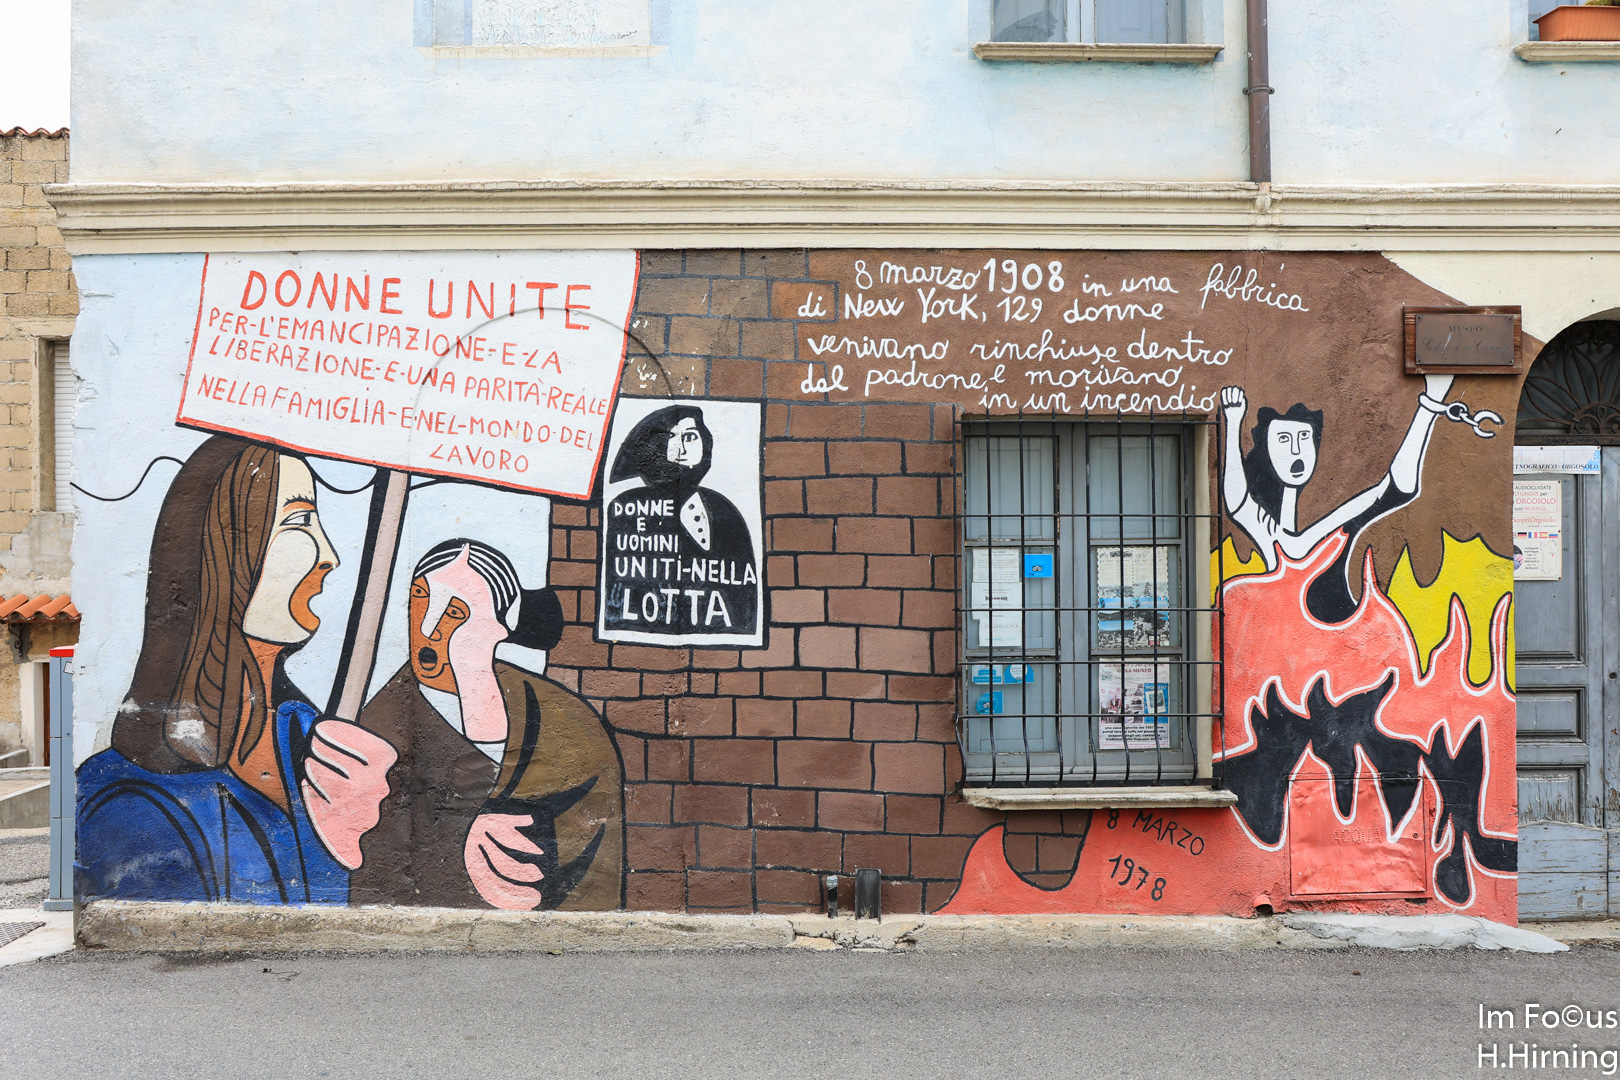 DONNE UNITE
PER-L'EMANCIPAZIONE-E-LA
LIBERAZIONE-E-UNA PARITÀ-REALE
NELLA FAMIGLIA-E-NEL-MONDO-DEL
LAVORO
DONNE
E
UOMINI
UNITI-NELLA
LOTTA
8 marzo 1908 in una fabbrica
di New York, 129 donne
venivano rinchiuse dentro
dal padrone e morivano
in un incendio
MUSEO
ETNOGRAFICO - ORGOSOLO
AUDIOGUIDATE
ORGOSOLO
MURALES
ScopriOrgosolo
8 MARZO
1978
ACQUA
Im Fo©us
H.Hirning